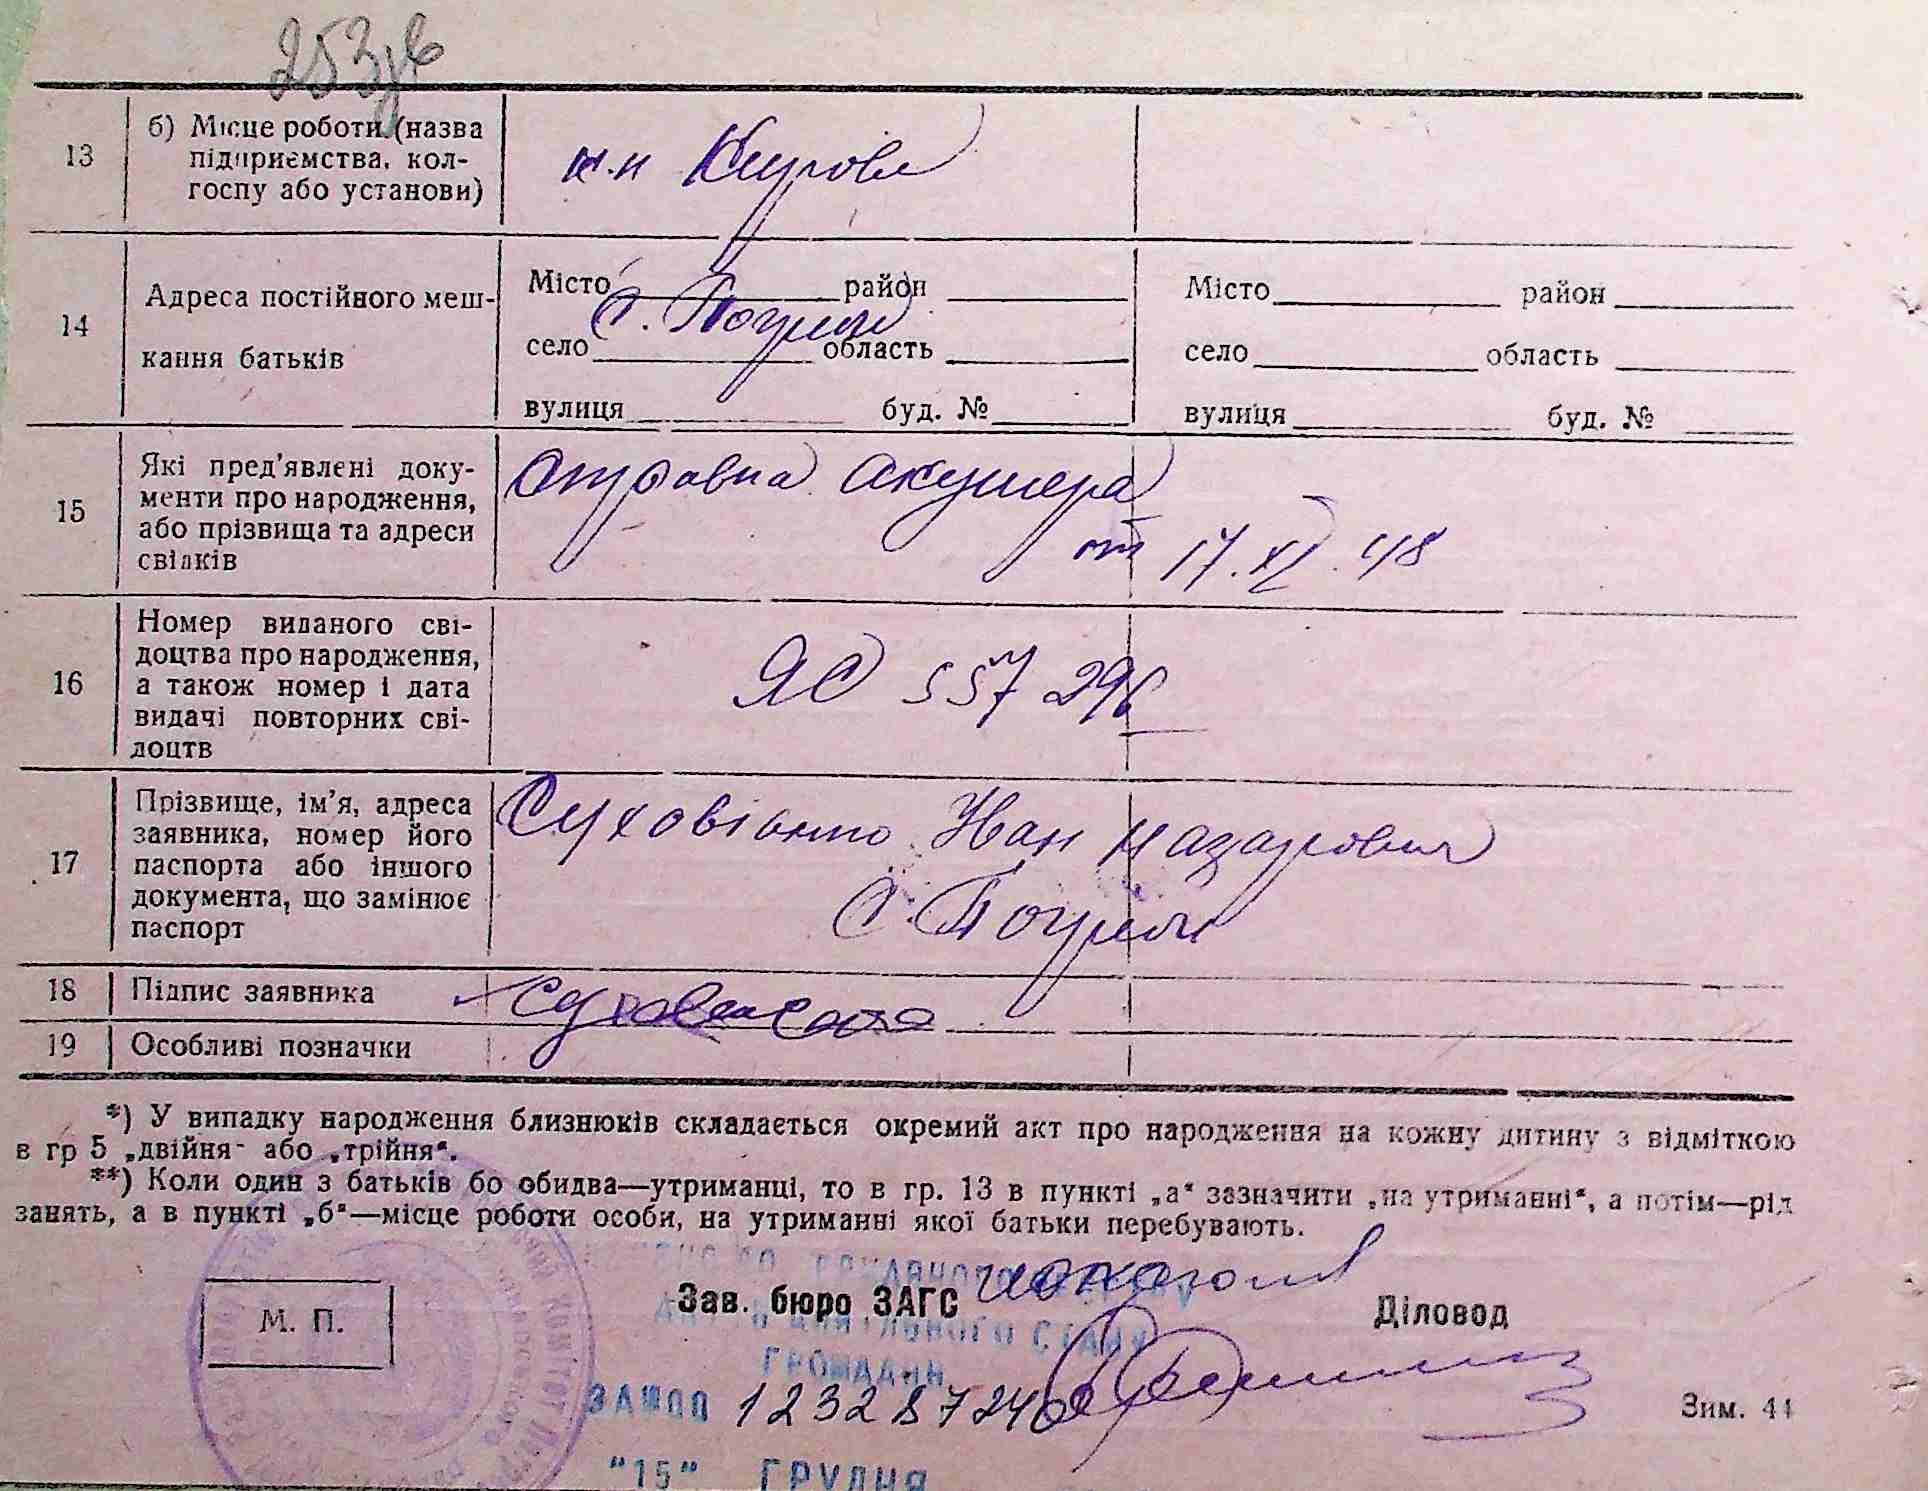 253зв
13
б) Місце роботи (назва
підприємства, кол-
госпу або установи)
к.и Кирова
14
Адреса постійного меш-
кання батьків
Місто район
с. Погреби
село область
вулиця буд. №
Місто район
село область
вулиця буд. №
15
Які пред'явлені доку-
менти про народження,
або прізвища та адреси
свідків
Справка акушера
от 17.XI.48
16
Номер виданого сві-
доцтва про народження,
а також номер і дата
видачі повторних сві-
доцтв
ЯС 557296
17
Прізвище, ім'я, адреса
заявника, номер його
паспорта або іншого
документа, що замінює
паспорт
Іван Назарович
с. Погреби
18
Підпис заявника
19
Особливі позначки
*) У випадку народження близнюків складається окремий акт про народження на кожну дитину з відміткою
в гр 5 „двійня" або „трійня".
**) Коли один з батьків бо обидва—утриманці, то в гр. 13 в пункті „а" зазначити „на утриманні", а потім—рід
занять, а в пункті „б"—місце роботи особи, на утриманні якої батьки перебувають.
М. П.
Зав. бюро ЗАГС
Діловод
АКТІВ ЦИВІЛЬНОГО СТАНУ
ГРОМАДЯН
123287246
Зим. 44
"15" ГРУДНЯ